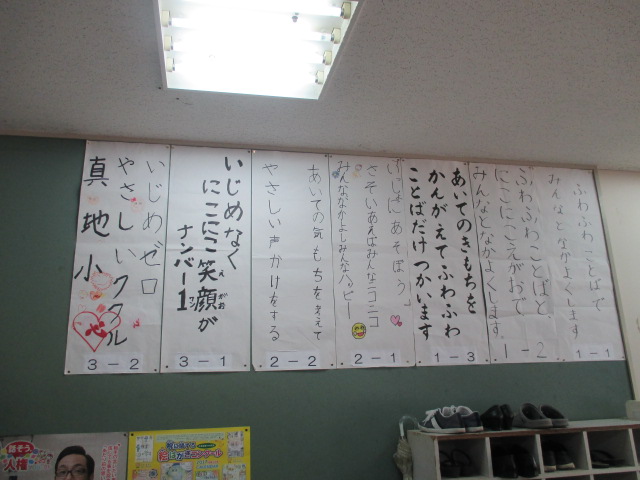 ふわふわことばで
みんなとなかよくします
1-1
ふわふわことばと
にこにこえがおで
みんなとなかよくします。
1-2
あいてのきもちを
かんがえてふわふわ
ことばだけつかいます
1-3
いっしょにあそぼう。
さそいあえばみんなニコニコ
みんななかよしみんなハッピー
2-1
あいての気もちを考えて
やさしい声かけをする
2-2
いじめなく
にこにこ笑顔が
えがお
ナンバー1
ワン
3-1
いじめゼロ
やさしいククル
真地小
心
3-2
話そう
人権